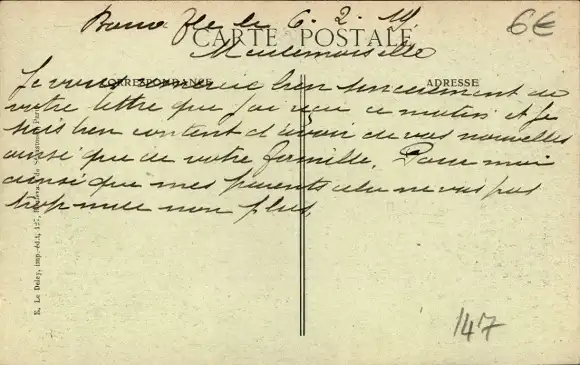 le 6. 2. 14
6€
CARTE POSTALE
Medemoiselle
CORRESPONDANCE
ADRESSE
Je vous remercie bien sincèrement de
votre lettre que j'ai reçu ce matin et je
suis bien content d'avoir de vos nouvelles
ainsi que de votre famille. Pour moi
ainsi que mes parents cela ne vais pas
trop mal non plus.
E. Le Deley, imp.-éd., 127, Paris
147